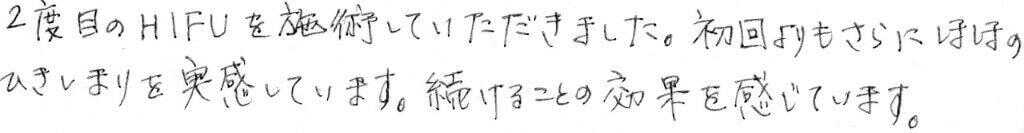 2度目のHIFUを施術していただきました。初回よりもさらにほほの
ひきしまりを実感しています。続けることの効果を感じています。